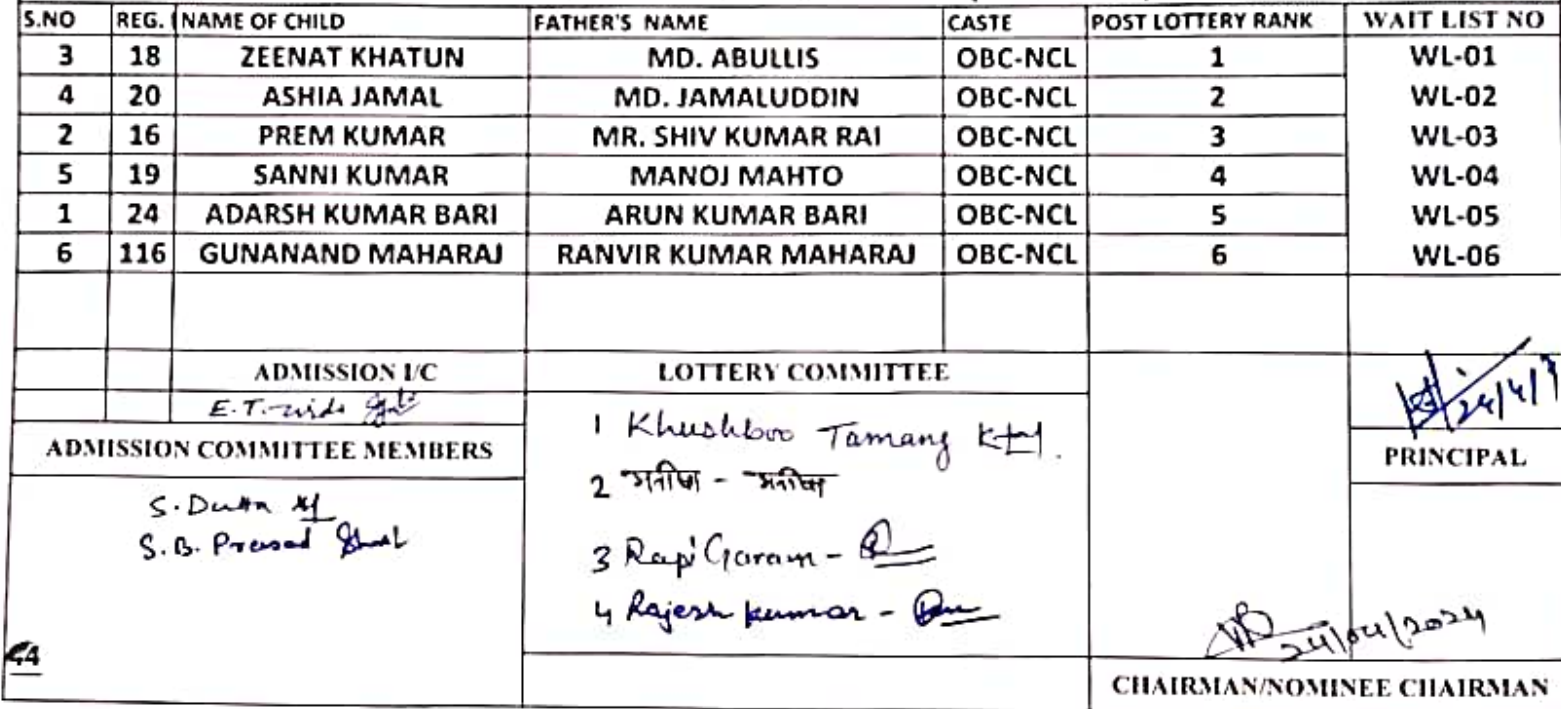 S.NO REG. NAME OF CHILD FATHER'S NAME CASTE POST LOTTERY RANK WAIT LIST NO
3 18 ZEENAT KHATUN MD. ABULLIS OBC-NCL 1 WL-01
4 20 ASHIA JAMAL MD. JAMALUDDIN OBC-NCL 2 WL-02
2 16 PREM KUMAR MR. SHIV KUMAR RAI OBC-NCL 3 WL-03
5 19 SANNI KUMAR MANOJ MAHTO OBC-NCL 4 WL-04
1 24 ADARSH KUMAR BARI ARUN KUMAR BARI OBC-NCL 5 WL-05
6 116 GUNANAND MAHARAJ RANVIR KUMAR MAHARAJ OBC-NCL 6 WL-06
ADMISSION I/C LOTTERY COMMITTEE
E.T.
24/4/
ADMISSION COMMITTEE MEMBERS
1 Khushboo Tamang
PRINCIPAL
2 मनीषा - मनीषा
S. Dutta
S.B. Prasad
3 Rapi Garam -
4 Rajesh kumar -
24/04/2024
44
CHAIRMAN/NOMINEE CHAIRMAN